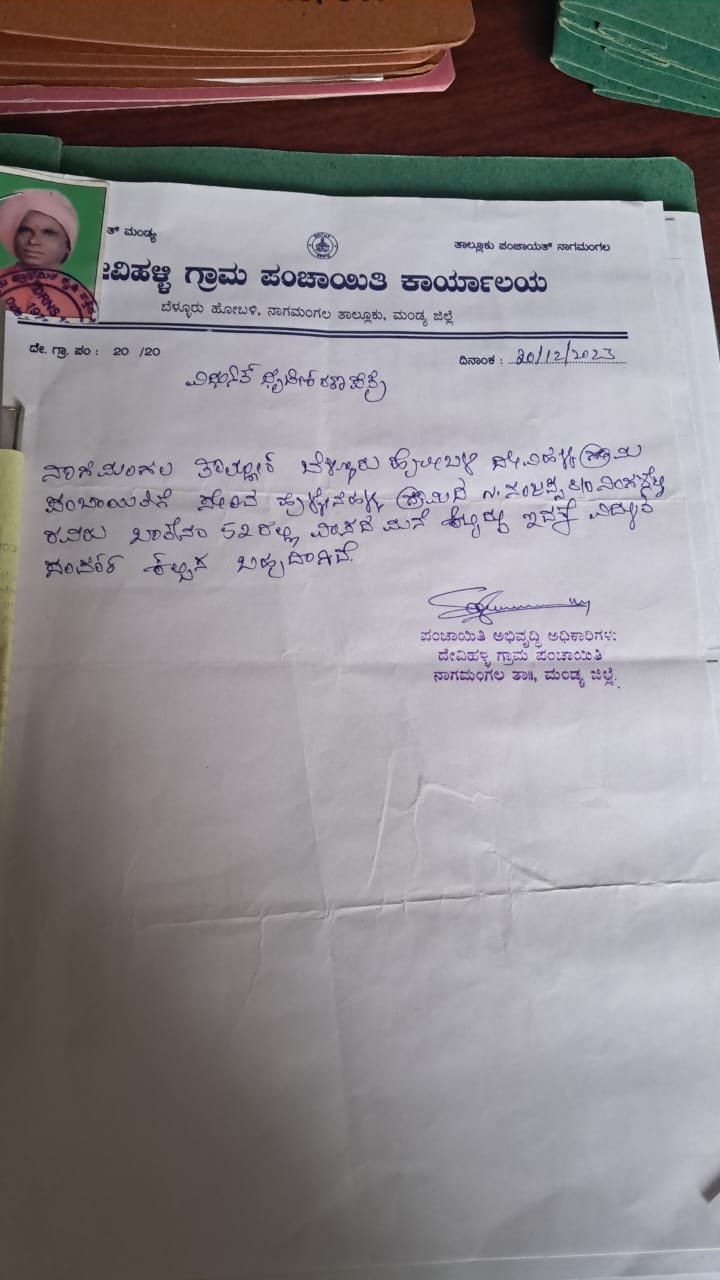 ತ್ ಮಂಡ್ಯ
ತಾಲ್ಲೂಕು ಪಂಚಾಯತ್ ನಾಗಮಂಗಲ
ೇವಿಹಳ್ಳಿ ಗ್ರಾಮ ಪಂಚಾಯಿತಿ ಕಾರ್ಯಾಲಯ
ಬೆಳ್ಳೂರು ಹೋಬಳಿ, ನಾಗಮಂಗಲ ತಾಲ್ಲೂಕು, ಮಂಡ್ಯ ಜಿಲ್ಲೆ
ದೇ. ಗ್ರಾ. ಪಂ : 20 /20
ದಿನಾಂಕ : 20/12/2023
ನಾಗಮಂಗಲ ತಾಲ್ಲೂಕ್ ಬೆಳ್ಳೂರು ಹೋಬಳಿ ದೇವಿಹಳ್ಳಿ ಗ್ರಾಮ
ಪಂಚಾಯಿತಿಗೆ ಸೇರಿದ ಗ್ರಾಮದ S/O
ರವರು 52 ರಲ್ಲಿ ವಾಸದ ಮನೆ ಇದಕ್ಕೆ ವಿದ್ಯುತ್
ಸಂಪರ್ಕ ಕಲ್ಪಿಸ ಬಹುದಾಗಿದೆ.
ಪಂಚಾಯಿತಿ ಅಭಿವೃದ್ಧಿ ಅಧಿಕಾರಿಗಳು
ದೇವಿಹಳ್ಳಿ ಗ್ರಾಮ ಪಂಚಾಯಿತಿ
ನಾಗಮಂಗಲ ತಾ॥, ಮಂಡ್ಯ ಜಿಲ್ಲೆ.